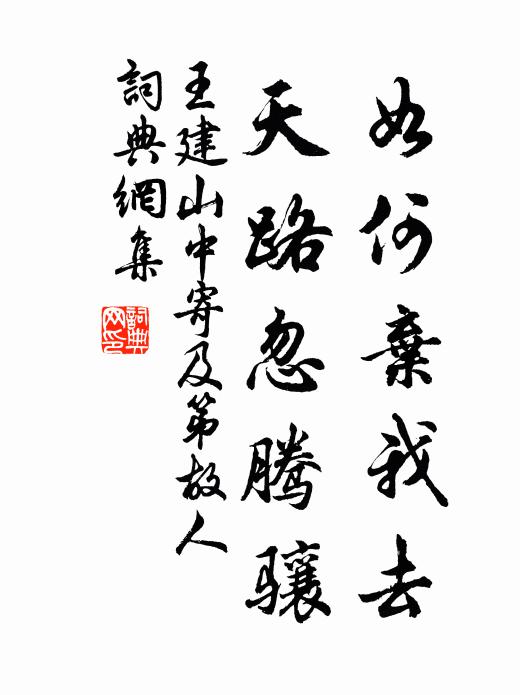 如何棄我去
天路忽腾骧
王建山中寄及第故人
詞典網集
詞典
网印